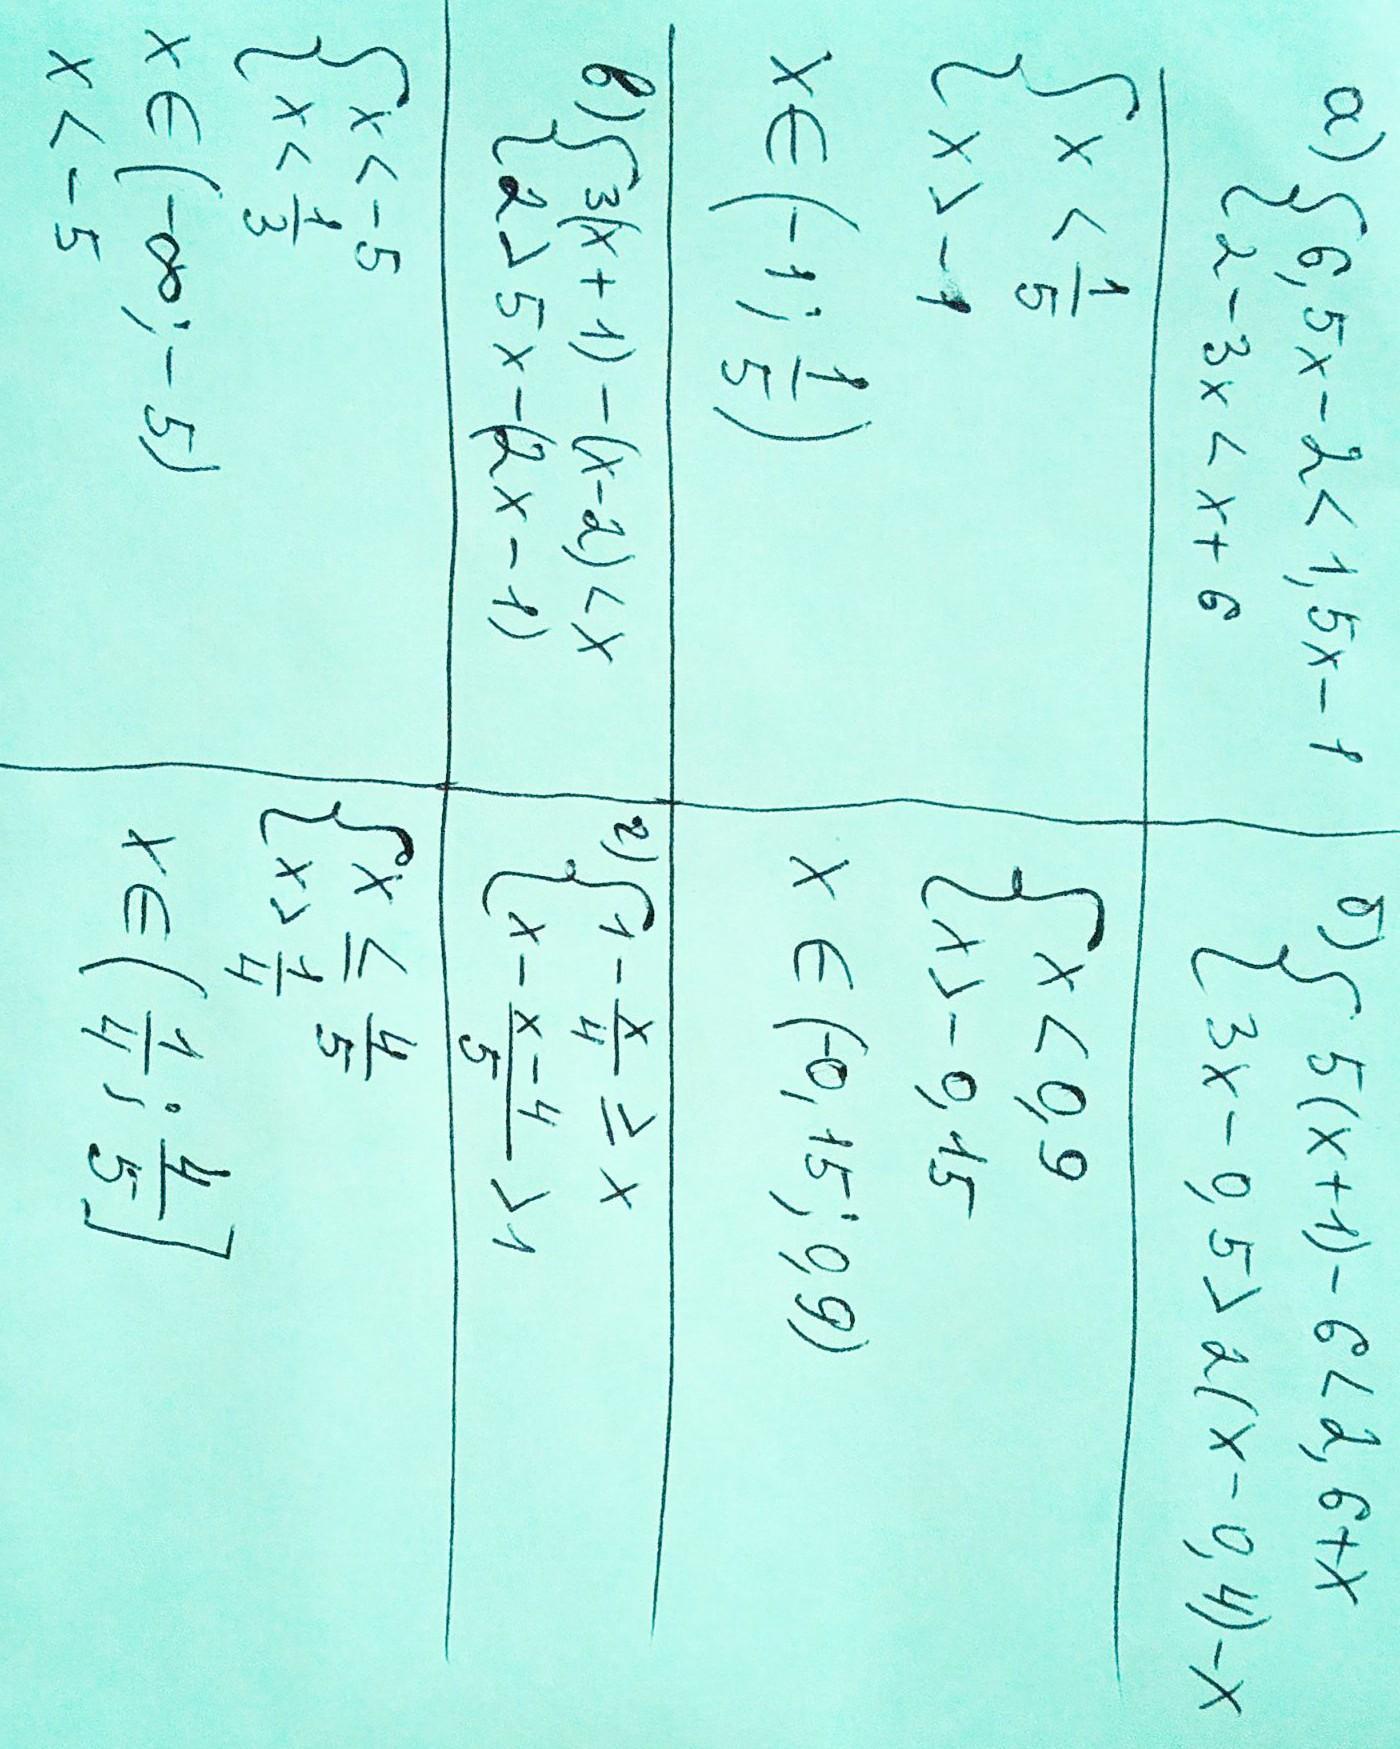 а) { 6,5x - 2 < 1,5x - 1
2 - 3x < x + 6
{ x < 1/5
x > -1
x ∈ (-1; 1/5)
б) { 5(x+1) - 6 < 2,6 + x
3x - 0,5 > 2(x - 0,4) - x
{ x < 0,9
x > -0,15
x ∈ (-0,15; 0,9)
в) { 3(x + 1) - (x - 2) < x
2 > 5x - (2x - 1)
{ x < -5
x < 1/3
x ∈ (-∞; -5)
x < -5
г) { 1 - x/4 ≥ x
x - (x - 4)/5 > 1
{ x ≤ 4/5
x > 1/4
x ∈ (1/4; 4/5]